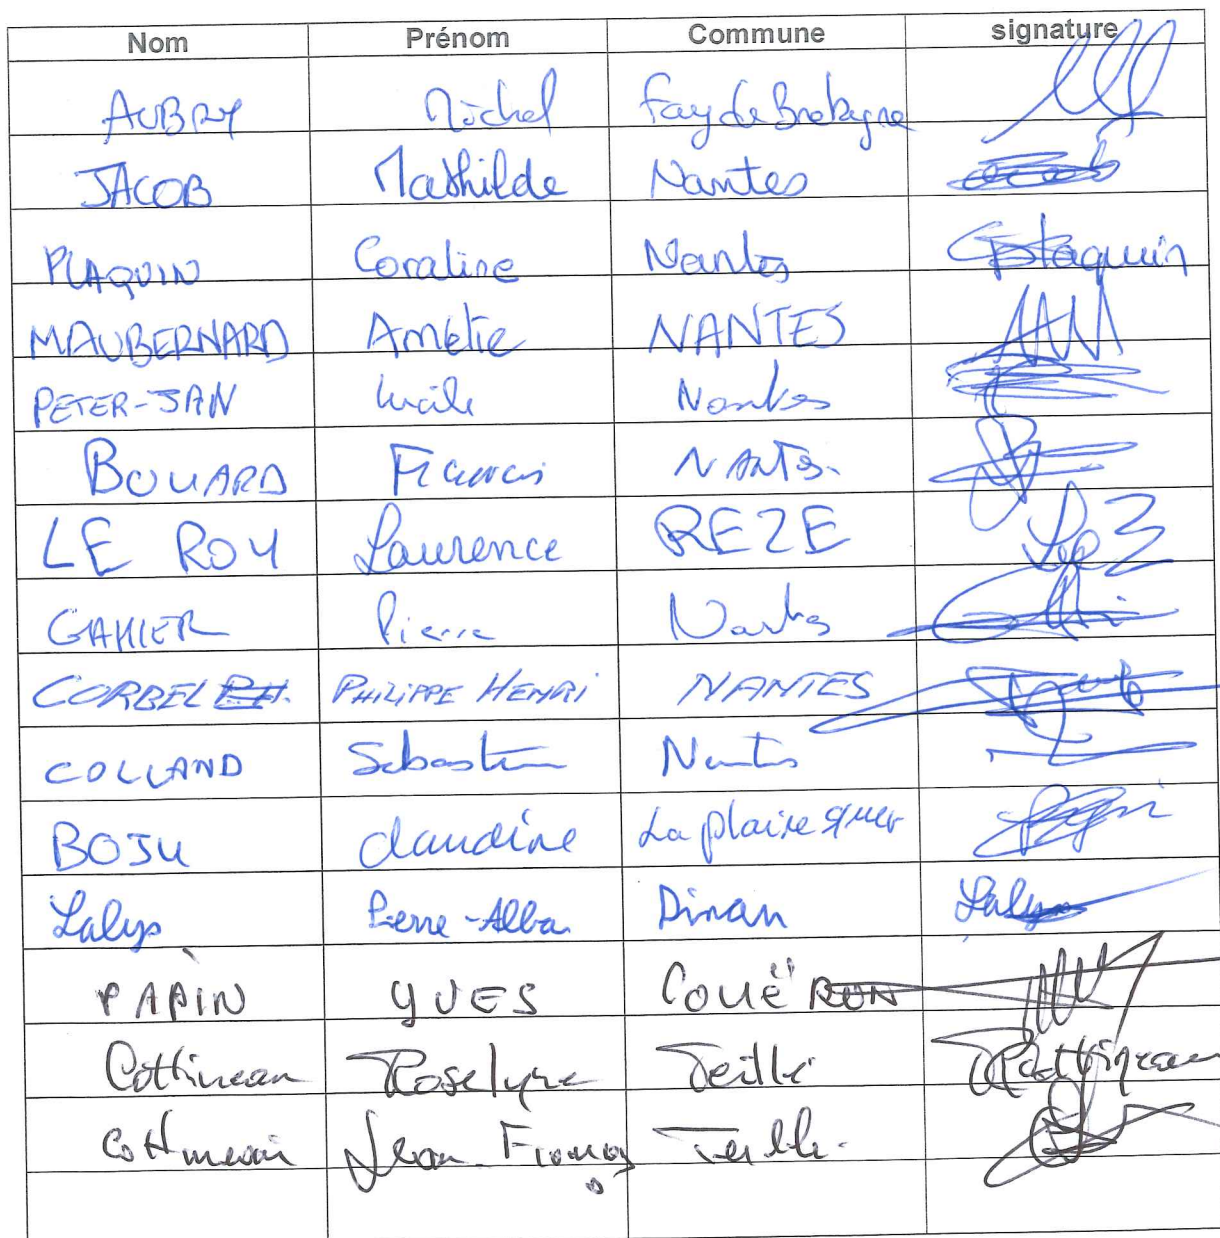 Nom Prénom Commune signature
AUBRY Michel Fay de Bretagne
JACOB Mathilde Nantes
PLAQUIN Coraline Nantes CPlaquin
MAUBERNARD Amélie NANTES
PETER-JAN Lucile Nantes
BOUARD Francis NANTES.
LE ROY Laurence REZE
GAHIER Pierre Nantes
CORBEL P.H. PHILIPPE HENRI NANTES
COLLAND Sébastien Nantes
BOJU Claudine La plaine s/mer
Lalys Pierre-Alban Dinan Lalys
PAPIN YVES COUËRON
Cottineau Roselyne Teillé RCottineau
Cottineau Jean-François Teillé